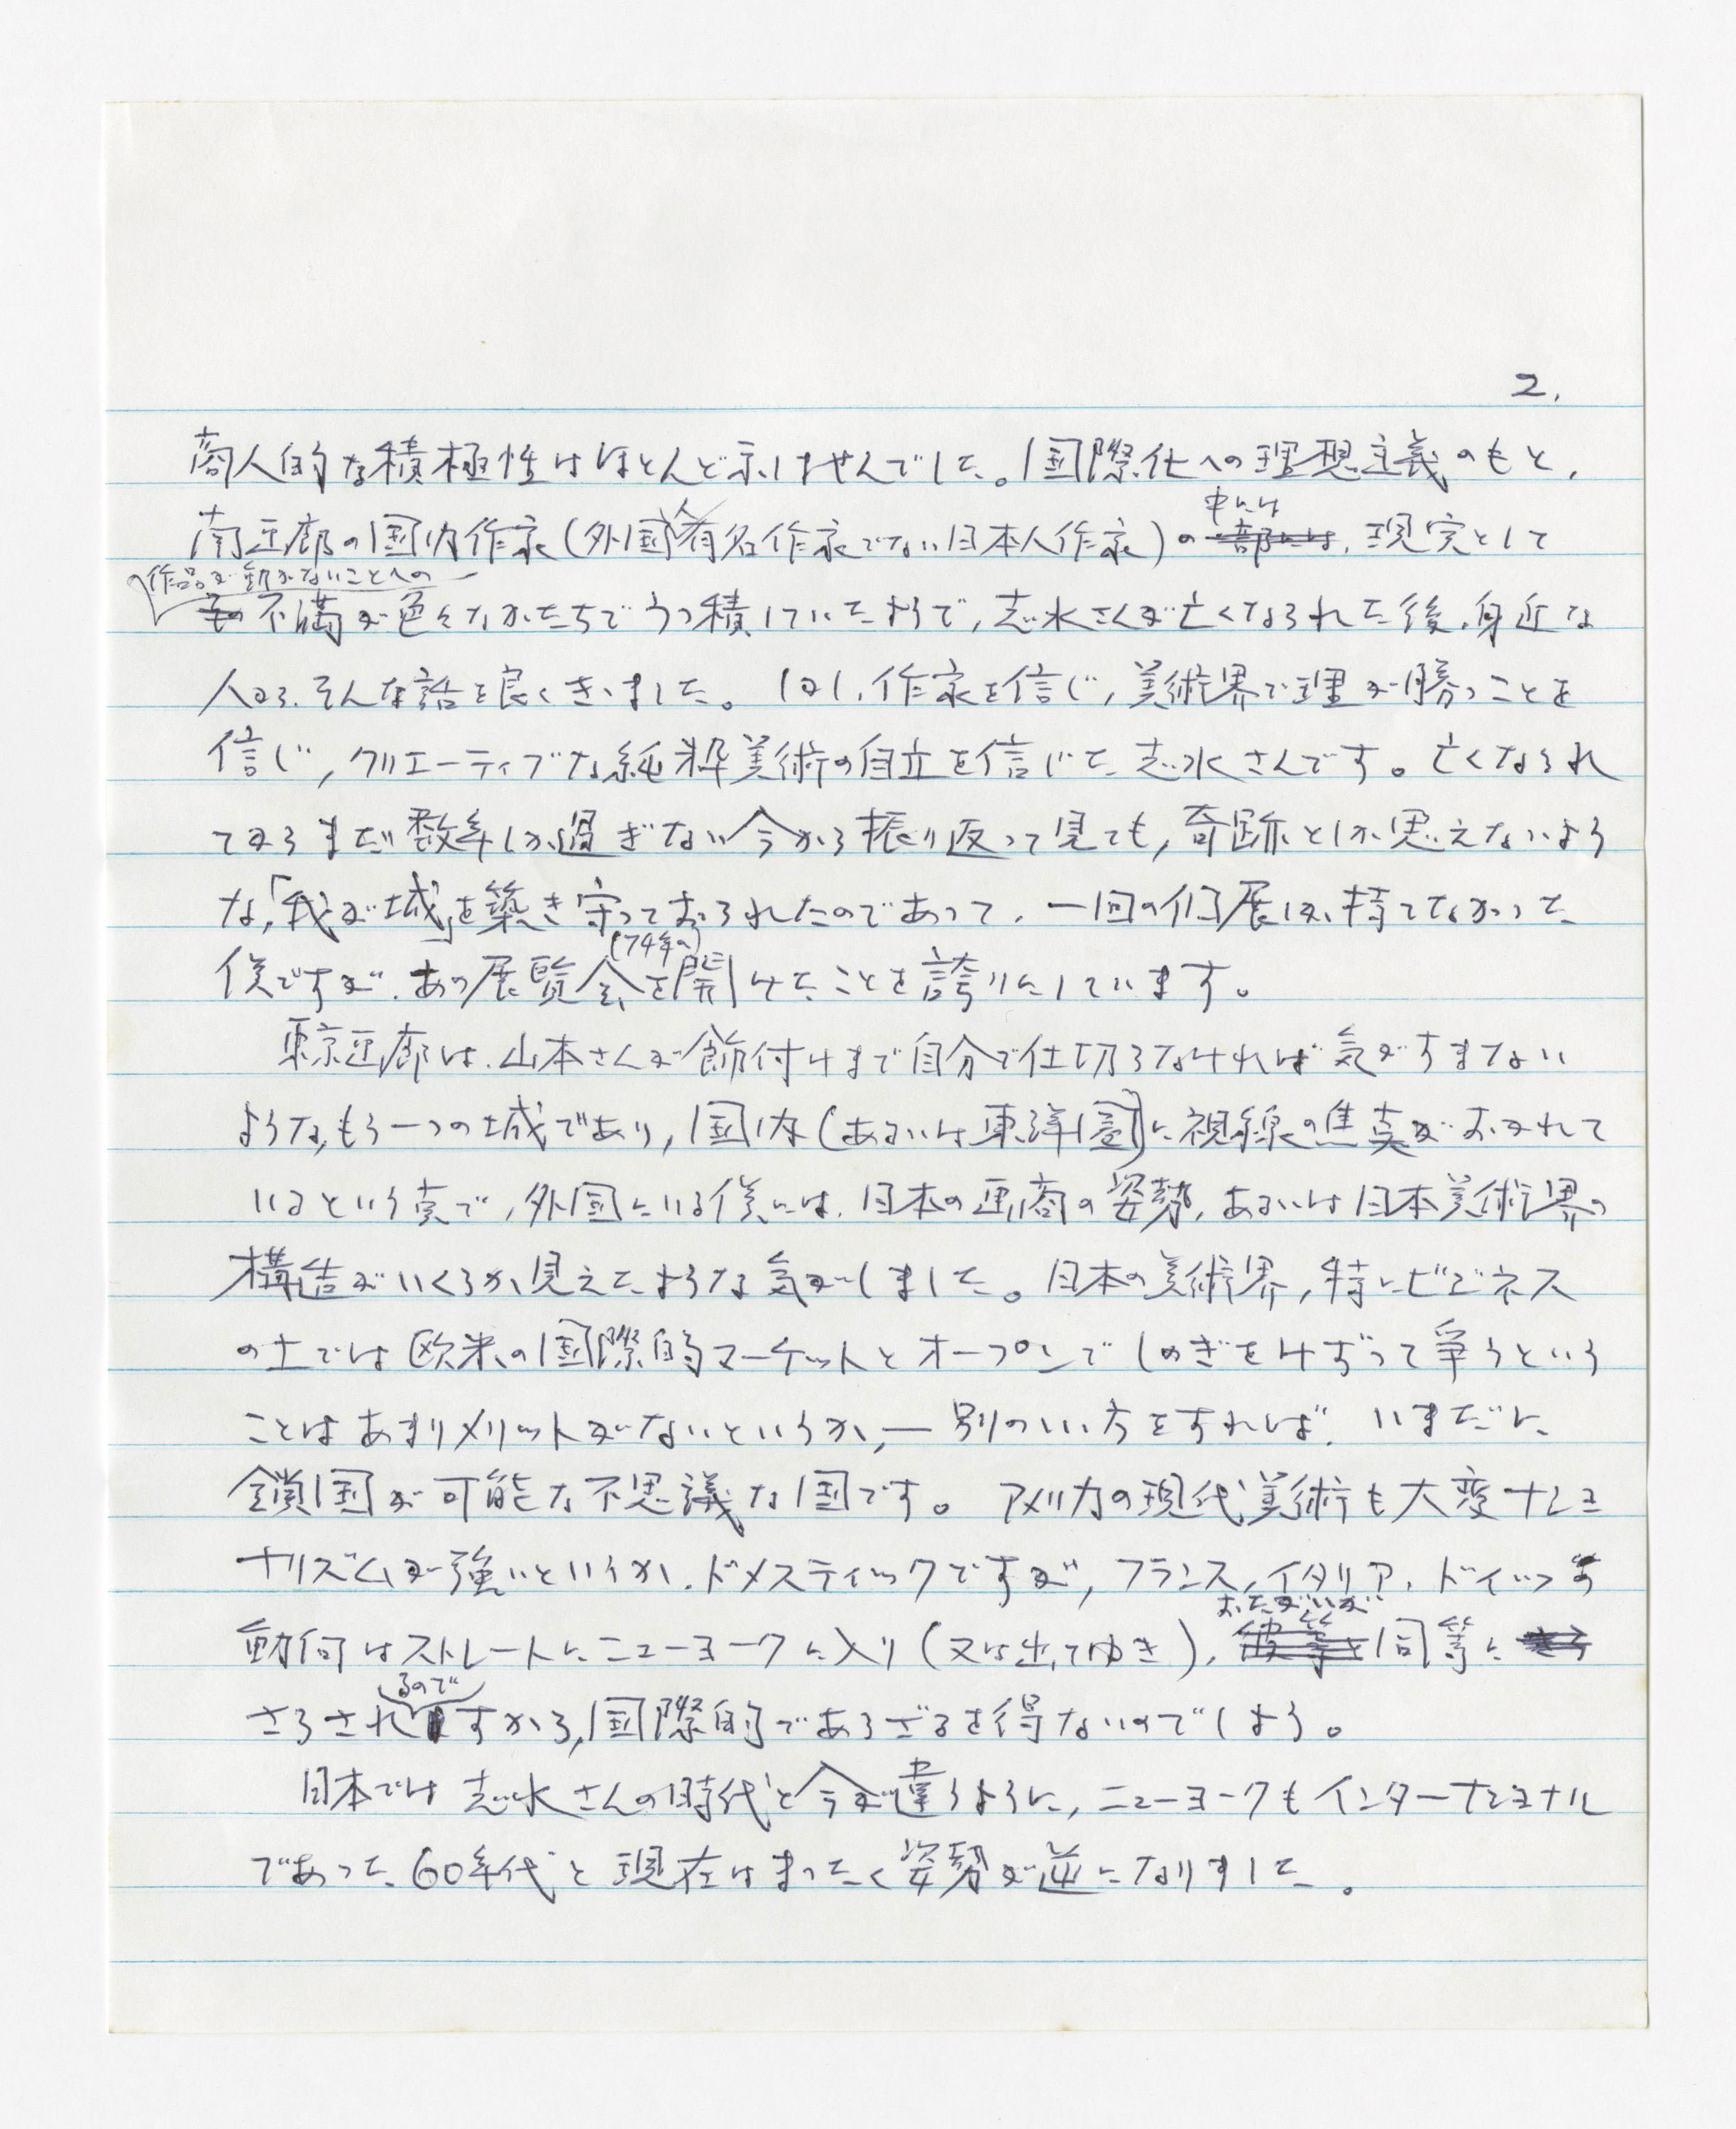 2.
商人的な積極性はほとんど示しませんでした。国際化への理想主義のもと、
中には
南画廊の国内作家(外国有名作家でない日本人作家)の一部には、現実として
作品が動かないことへの
その不満が色々なかたちでうっ積していたようで、志水さんが亡くなられた後、身近な
人から、そんな話を良くききました。しかし、作家を信じ、美術界で理が勝つことを
信じ、クリエーティブな純粋美術の自立を信じた志水さんです。亡くなられ
てからまだ数年しか過ぎない今から振り返って見ても、奇跡としか思えないよう
な、「我が城」を築き守っておられたのであって、一回の個展しか持てなかった
(74年の)
僕ですが、あの展覧会を開けたことを誇りにしています。
東京画廊は、山本さんが飾付けまで自分で仕切らなければ気がすまない
ような、もう一つの城であり、国内(あるいは東洋圏)に視線の焦点がおかれて
いるという点で、外国にいる僕には、日本の画商の姿勢、あるいは日本美術界の
構造がいくらか見えたような気がしました。日本の美術界、特にビジネス
の上では欧米の国際的マーケットとオープンでしのぎをけずって争うという
ことはあまりメリットがないというか、―別のいい方をすれば、いまだに
鎖国が可能な不思議な国です。アメリカの現代美術も大変ナショ
ナリズムが強いというか、ドメスティックですが、フランス、イタリア、ドイツの
おたがいが
動向はストレートにニューヨークに入り(又は出てゆき)、彼等と同等に
るので
さらされますから、国際的であらざるを得ないのでしょう。
日本では志水さんの時代と今が違うように、ニューヨークもインターナショナル
であった60年代と現在はまったく姿勢が逆になりました。